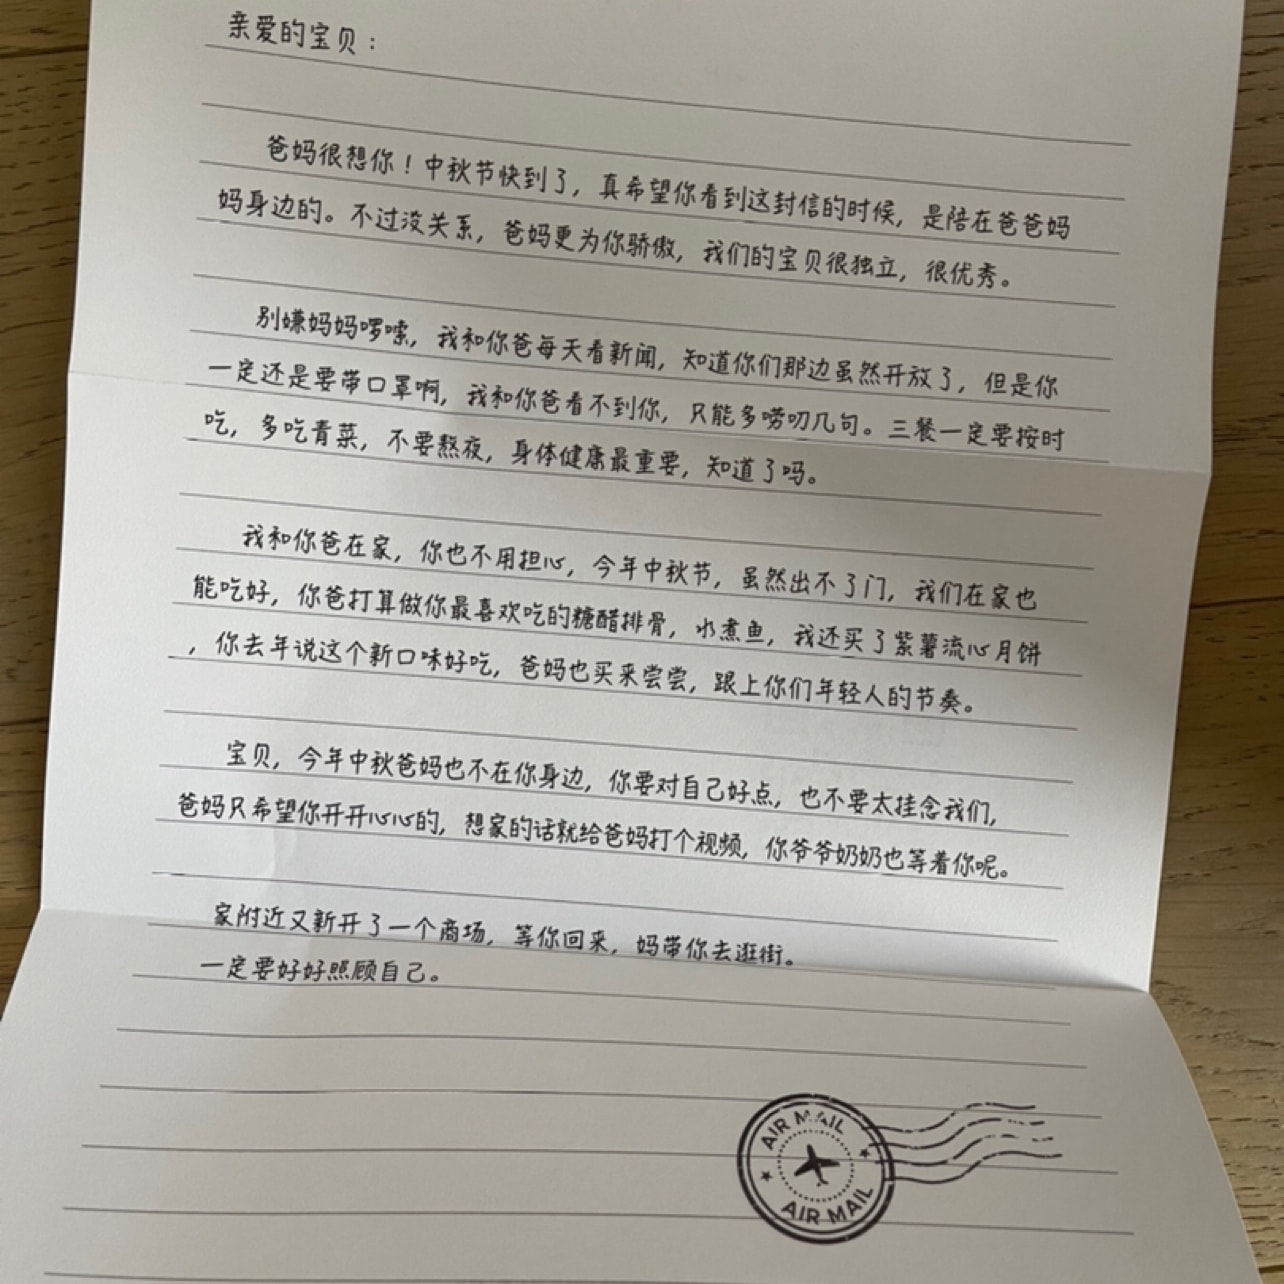 亲爱的宝贝：
爸妈很想你！中秋节快到了，真希望你看到这封信的时候，是陪在爸爸妈
妈身边的。不过没关系，爸妈更为你骄傲，我们的宝贝很独立，很优秀。
别嫌妈妈啰嗦，我和你爸每天看新闻，知道你们那边虽然开放了，但是你
一定还是要带口罩啊，我和你爸看不到你，只能多唠叨几句。三餐一定要按时
吃，多吃青菜，不要熬夜，身体健康最重要，知道了吗。
我和你爸在家，你也不用担心，今年中秋节，虽然出不了门，我们在家也
能吃好，你爸打算做你最喜欢吃的糖醋排骨，水煮鱼，我还买了紫薯流心月饼
，你去年说这个新口味好吃，爸妈也买来尝尝，跟上你们年轻人的节奏。
宝贝，今年中秋爸妈也不在你身边，你要对自己好点，也不要太挂念我们，
爸妈只希望你开开心心的，想家的话就给爸妈打个视频，你爷爷奶奶也等着你呢。
家附近又新开了一个商场，等你回来，妈带你去逛街。
一定要好好照顾自己。
AIR MAIL
AIR MAIL